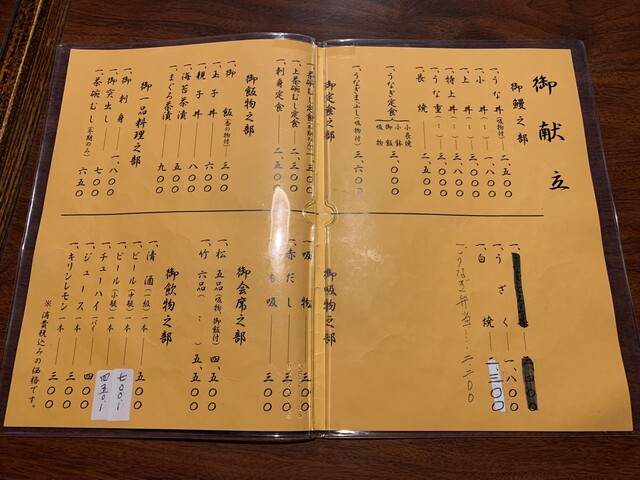 御献立
御鰻之部
一、うな丼(吸物付)――二、五〇〇
一、小丼――一、八〇〇
一、上丼――
一、特上丼――三、
一、うな重
一、長焼――二、五〇〇
一、うなぎ定食 小長焼 小鉢 御飯 吸物――三、五〇〇
一、うなぎまぶし(吸物付)――三、六〇〇
御定食之部
一、茶碗むし定食(冬期のみ)――三、〇〇〇
一、上茶碗むし定食――三、〇〇〇
一、刺身定食――二、五〇〇
御飯物之部
一、御飯(香の物付)――三〇〇
一、玉子丼――六〇〇
一、親子丼――八〇〇
一、海苔茶漬――五〇〇
一、まぐろ茶漬――九〇〇
御一品料理之部
一、御刺身――一、八〇〇
一、御突出し――七〇〇
一、茶碗むし(冬期のみ)――六五〇
一、うざく――一、八〇〇
一、白焼――二、三〇〇
一、うなぎ弁当…二二〇〇
御吸物之部
一、吸物――三〇〇
一、赤だし――三〇〇
一、肝吸――三〇〇
御会席之部
一、松 五品(吸物、御飯付)四、五〇〇
一、竹 六品(〃)五、五〇〇
御飲物之部
一、清酒(一級)一本――五〇〇
一、ビール(中瓶)一本――七〇〇
一、ビール(小瓶)一本――四五〇
一、チューハイ一パイ――四〇〇
一、ジュース一本――三〇〇
一、キリンレモン一本――三〇〇
※消費税込みの価格です。